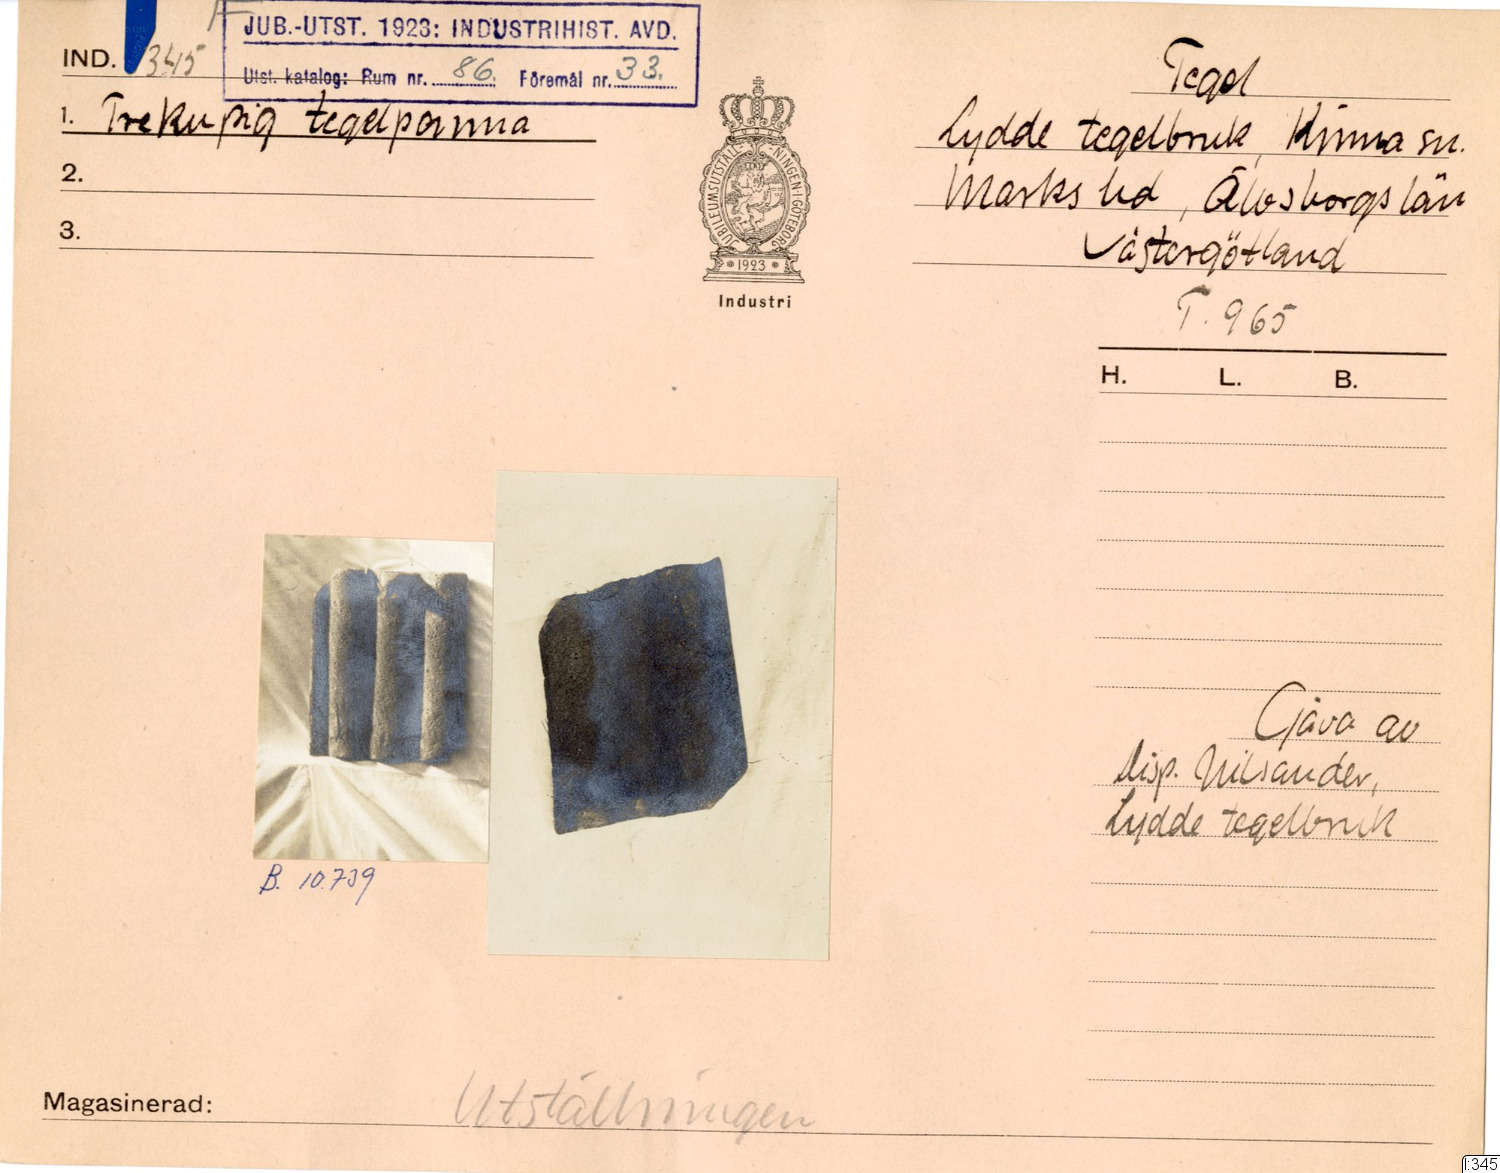 JUB.-UTST. 1923: INDUSTRIHIST. AVD.
Utst. katalog: Rum nr. 86. Föremål nr. 33.
IND. 345
1. Trekupig tegelpanna
2.
3.
JUBILEUMSUTSTÄLLNINGEN I GÖTEBORG
1923
Industri
Tegel
Lydde tegelbruk, Kinna sn.
Marks hd, Älvsborgs län
Västergötland
T. 965
H. L. B.
Gåva av
disp. Nilsander,
Lydde tegelbruk
B. 10.739
Magasinerad: Utställningen
I:345